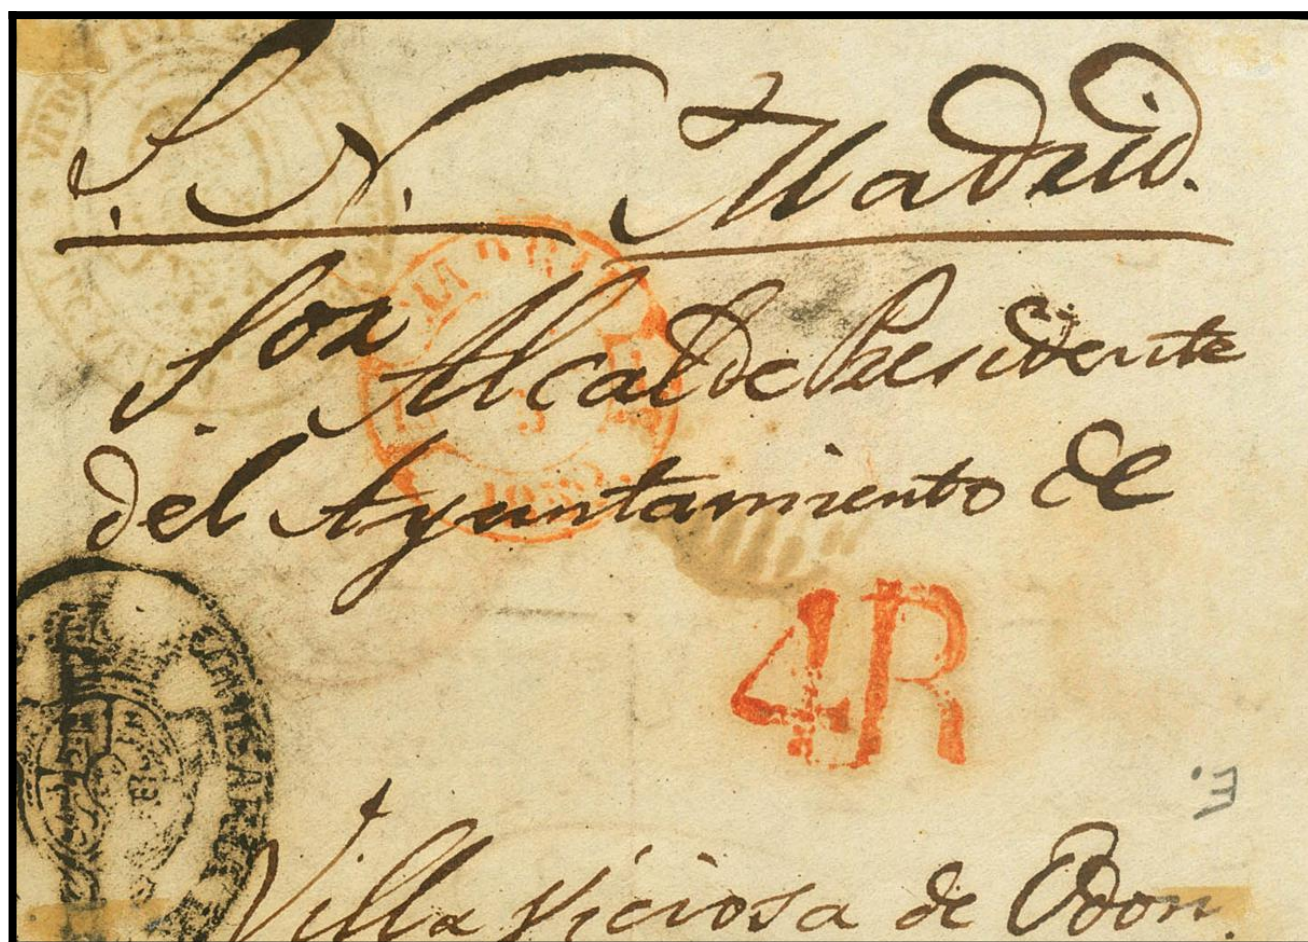 S. N. Madrid.
Sor Alcalde Presidente
del Ayuntamiento de
4R
E.
Villa Viciosa de Odon.